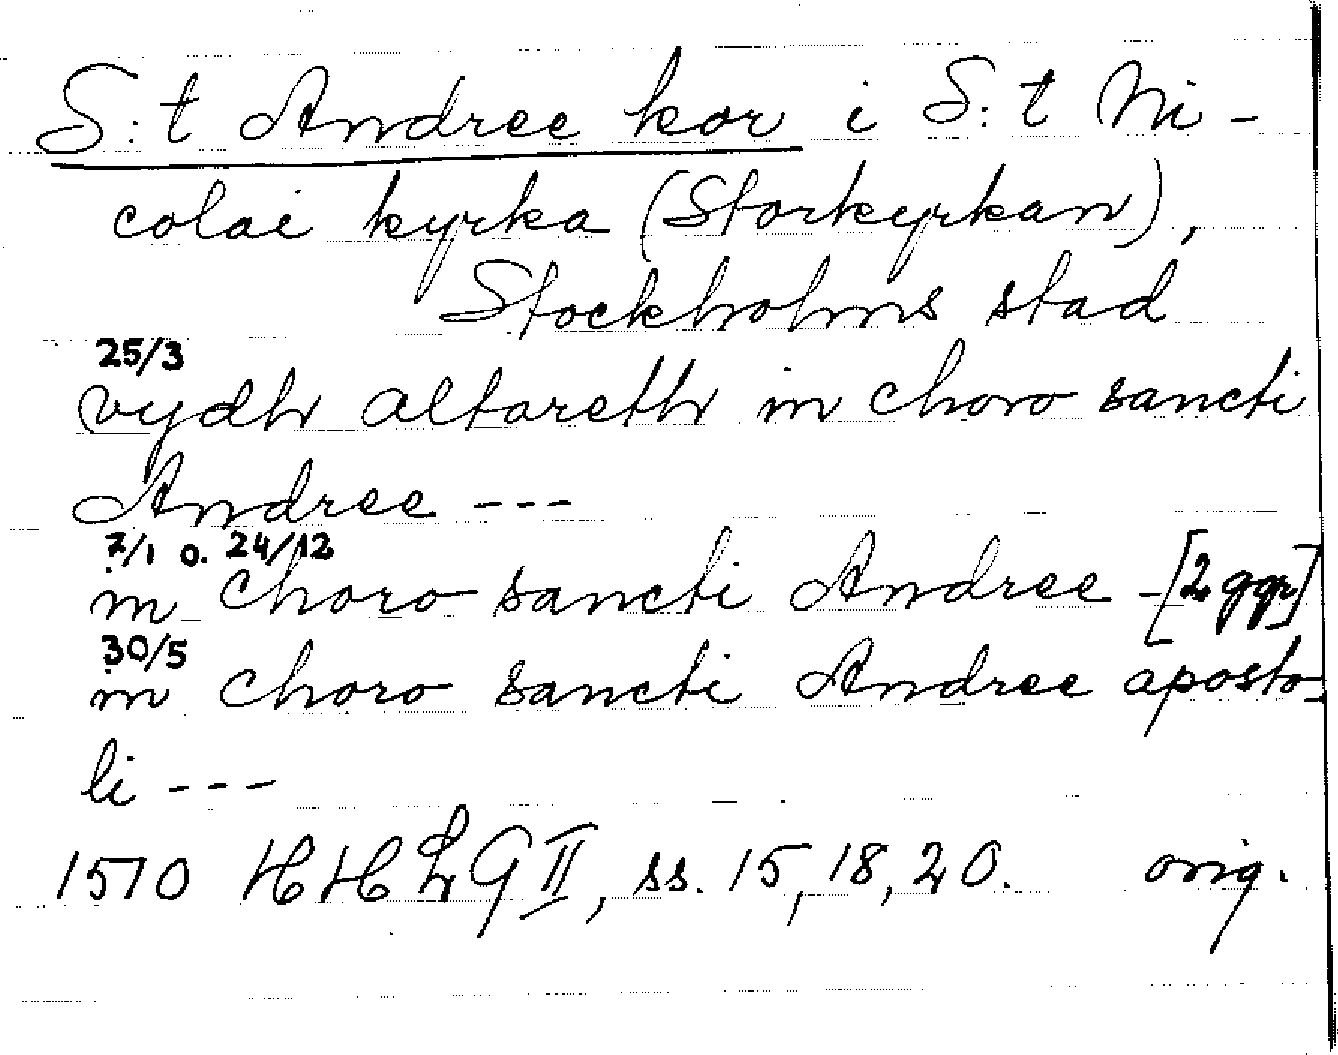 S:t Andree kor i S:t Ni-
colai kyrka (Storkyrkan),
Stockholms stad
25/3
vydh altareth in choro sancti
Andree ---
7/1 o. 24/12
in choro sancti Andree - [2 ggr]
30/5
in choro sancti Andree aposto-
li ---
1510 HHLG II, ss. 15, 18, 20. orig.